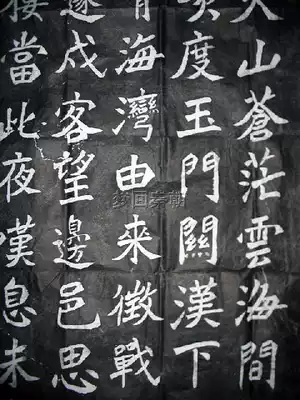 山蒼茫雲海間
度玉門關漢下
海灣由來徵戰
戍客望邊邑思
樓當此夜嘆息未